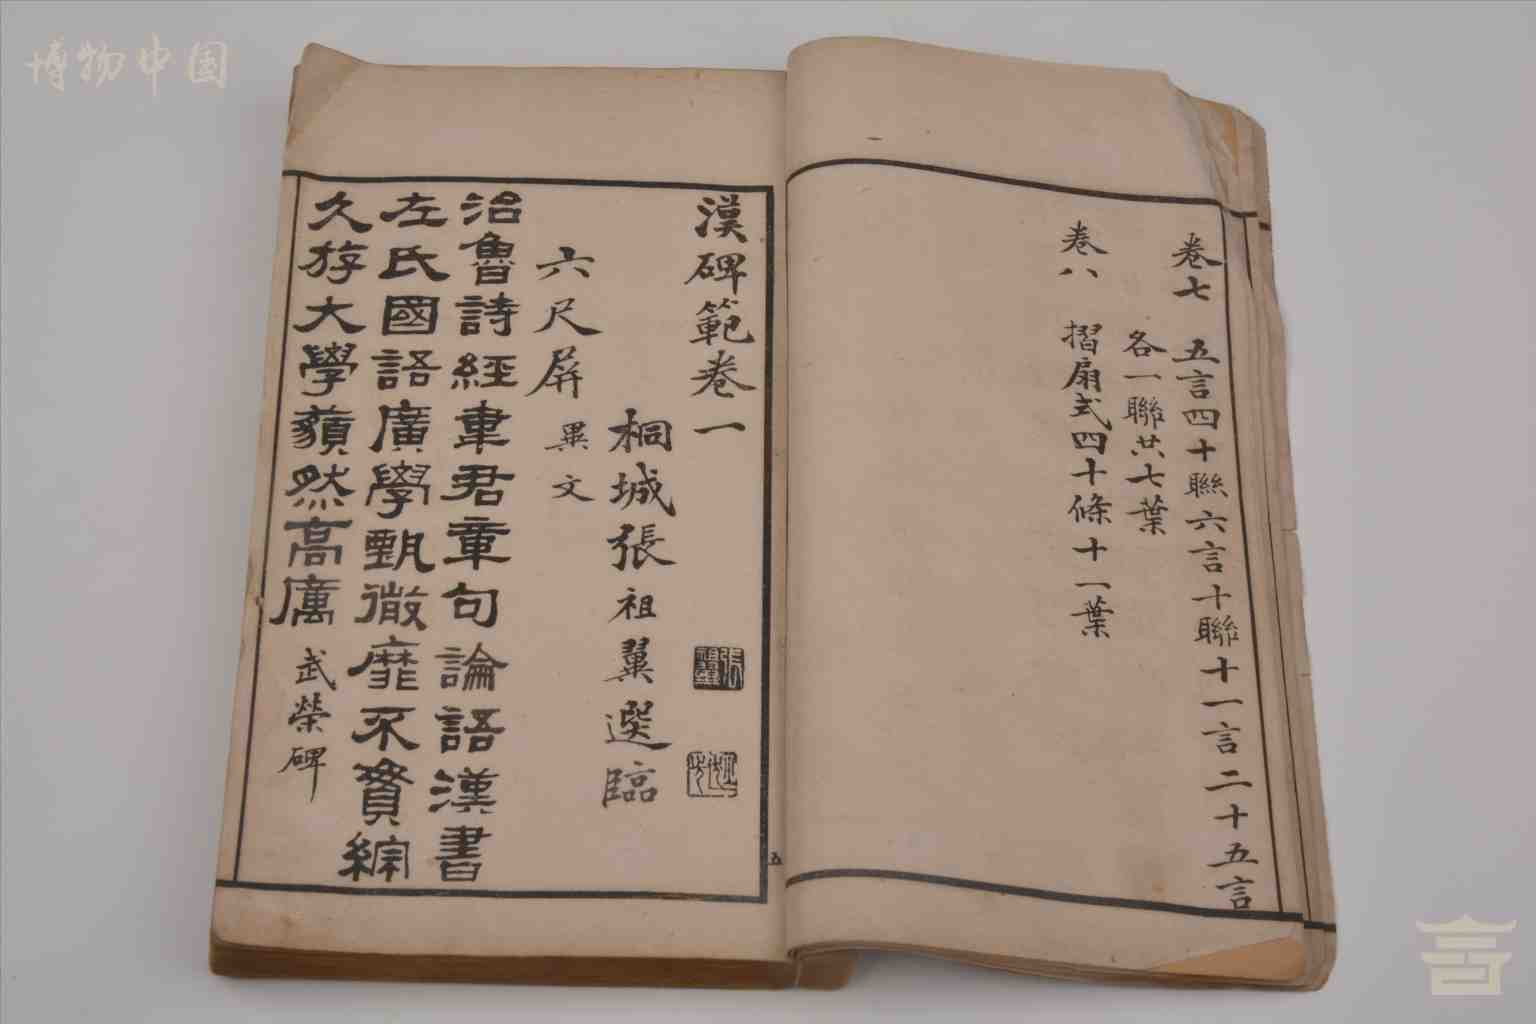 博物中国
卷七 五言四十聯六言十聯十一言二十五言
各一聯共七葉
卷八 摺扇式四十條十一葉
漢碑範卷一
桐城張祖翼選臨
六尺屏 異文
治魯詩經韋君章句論語漢書
左氏國語廣學甄微靡不貫綜
久斿大學藐然高厲 武榮碑
張祖翼
五